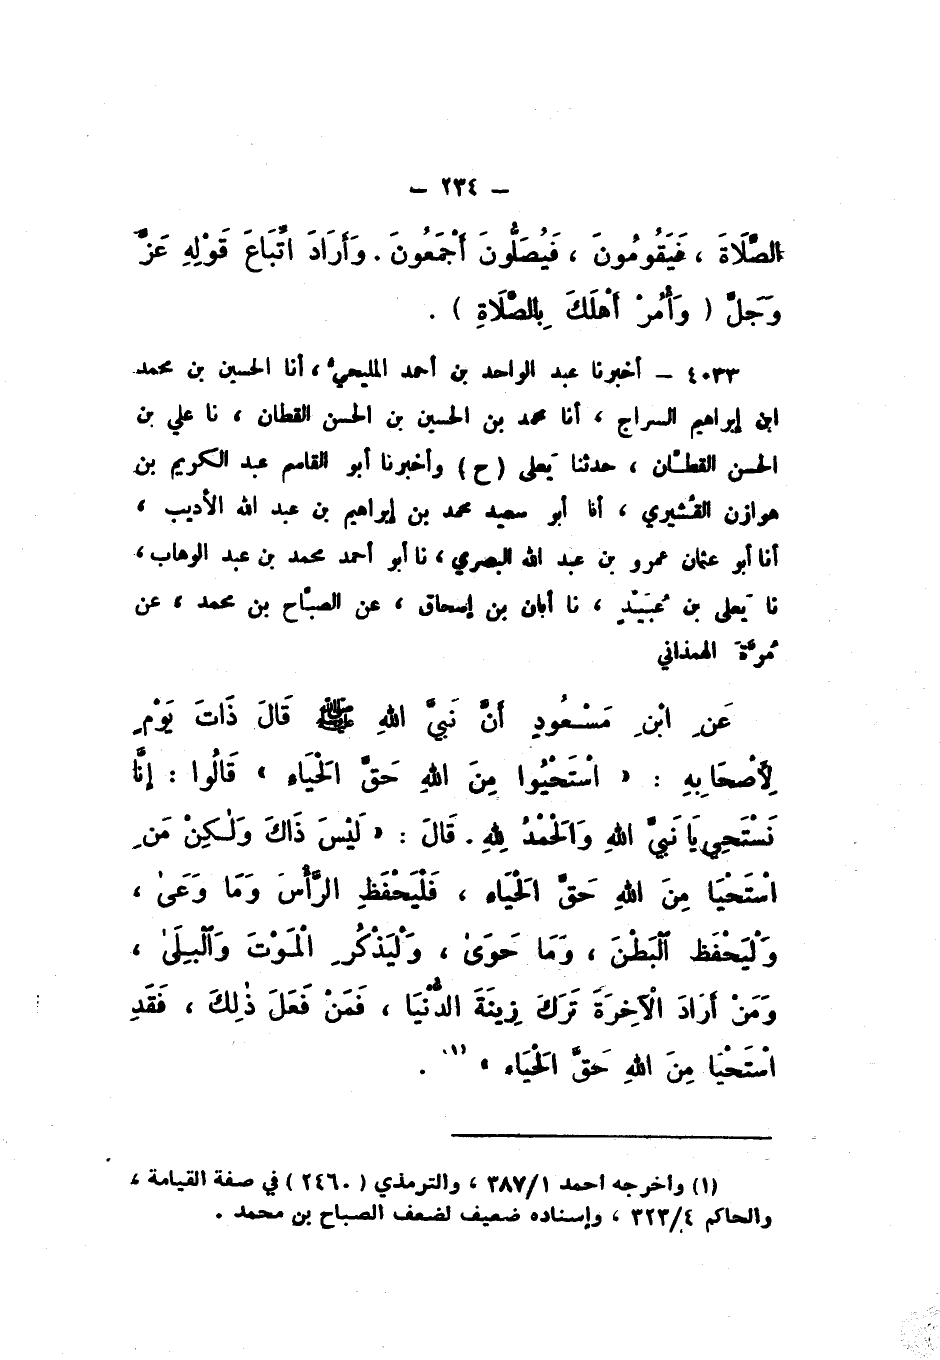 – ٢٣٤ –
الصَّلَاةَ ، فَيَقُومُونَ ، فَيُصَلُّونَ أَجْمَعُونَ . وَأَرَادَ اتِّبَاعَ قَوْلِهِ عَزَّ
وَجَلَّ ( وَأْمُرْ أَهْلَكَ بِالصَّلَاةِ ) .
٤٠٣٣ – أخبرنا عبد الواحد بن أحمد المليحيُّ ، أنا الحسين بن محمد
ابن إبراهيم السراج ، أنا محمد بن الحسين بن الحسن القطان ، نا علي بن
الحسن القطَّان ، حدثنا يَعلى ( ح ) وأخبرنا أبو القاسم عبد الكريم بن
هوازن القُشيري ، أنا أبو سعيد محمد بن إبراهيم بن عبد الله الأديب ،
أنا أبو عثمان عمرو بن عبد الله البصري ، نا أبو أحمد محمد بن عبد الوهاب ،
نا يَعلى بن عُبَيْدٍ ، نا أبان بن إسحاق ، عن الصبَّاح بن محمد ، عن
مُرَّةَ الهمذاني
عَنِ ابْنِ مَسْعُودٍ أَنَّ نَبِيَّ اللهِ ﷺ قَالَ ذَاتَ يَوْمٍ
لِأَصْحَابِهِ : « اسْتَحْيُوا مِنَ اللهِ حَقَّ الْحَيَاءِ » قَالُوا : إِنَّا
نَسْتَحِي يَا نَبِيَّ اللهِ وَالْحَمْدُ لِلهِ . قَالَ : « لَيْسَ ذَاكَ وَلٰكِنْ مَنِ
اسْتَحْيَا مِنَ اللهِ حَقَّ الْحَيَاءِ ، فَلْيَحْفَظِ الرَّأْسَ وَمَا وَعَىٰ ،
وَلْيَحْفَظِ ٱلْبَطْنَ ، وَمَا حَوَىٰ ، وَلْيَذْكُرِ الْمَوْتَ وَٱلْبِلَىٰ ،
وَمَنْ أَرَادَ الْآخِرَةَ تَرَكَ زِينَةَ الدُّنْيَا ، فَمَنْ فَعَلَ ذٰلِكَ ، فَقَدِ
اسْتَحْيَا مِنَ اللهِ حَقَّ الْحَيَاءِ » (١) .
(١) وأخرجه أحمد ٣٨٧/١ ، والترمذي ( ٢٤٦٠ ) في صفة القيامة ،
والحاكم ٣٢٣/٤ ، وإسناده ضعيف لضعف الصباح بن محمد .